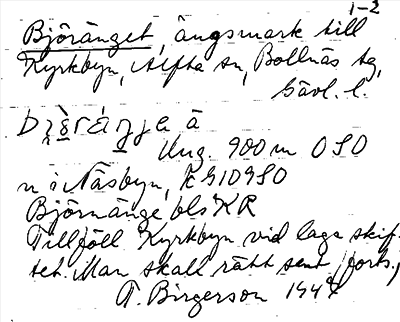 1-2
Björänget, ängsmark till
Kyrkbyn, Alfta sn, Bollnäs tg,
Gävl. l.
Ung. 900 m OSO
Näsbyn,
Björnänge bls KR
Tillföll Kyrkbyn vid laga skif-
tet. Man skall rätt sent (forts.)
T. Birgerson 1949